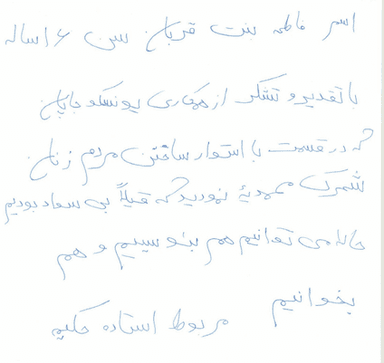 اسم فاطمه بنت قربان سن ۱۶ ساله
با تقدیر و تشکر از همکاری یونسکو جاپان
که در قسمت با استوار ساختن مردم زنان
شمرک محمدیۀ نمودید که قبلاً بی سواد بودیم
حالا می توانیم هم بنویسیم و هم
بخوانیم
مربوط استاده حکیمه